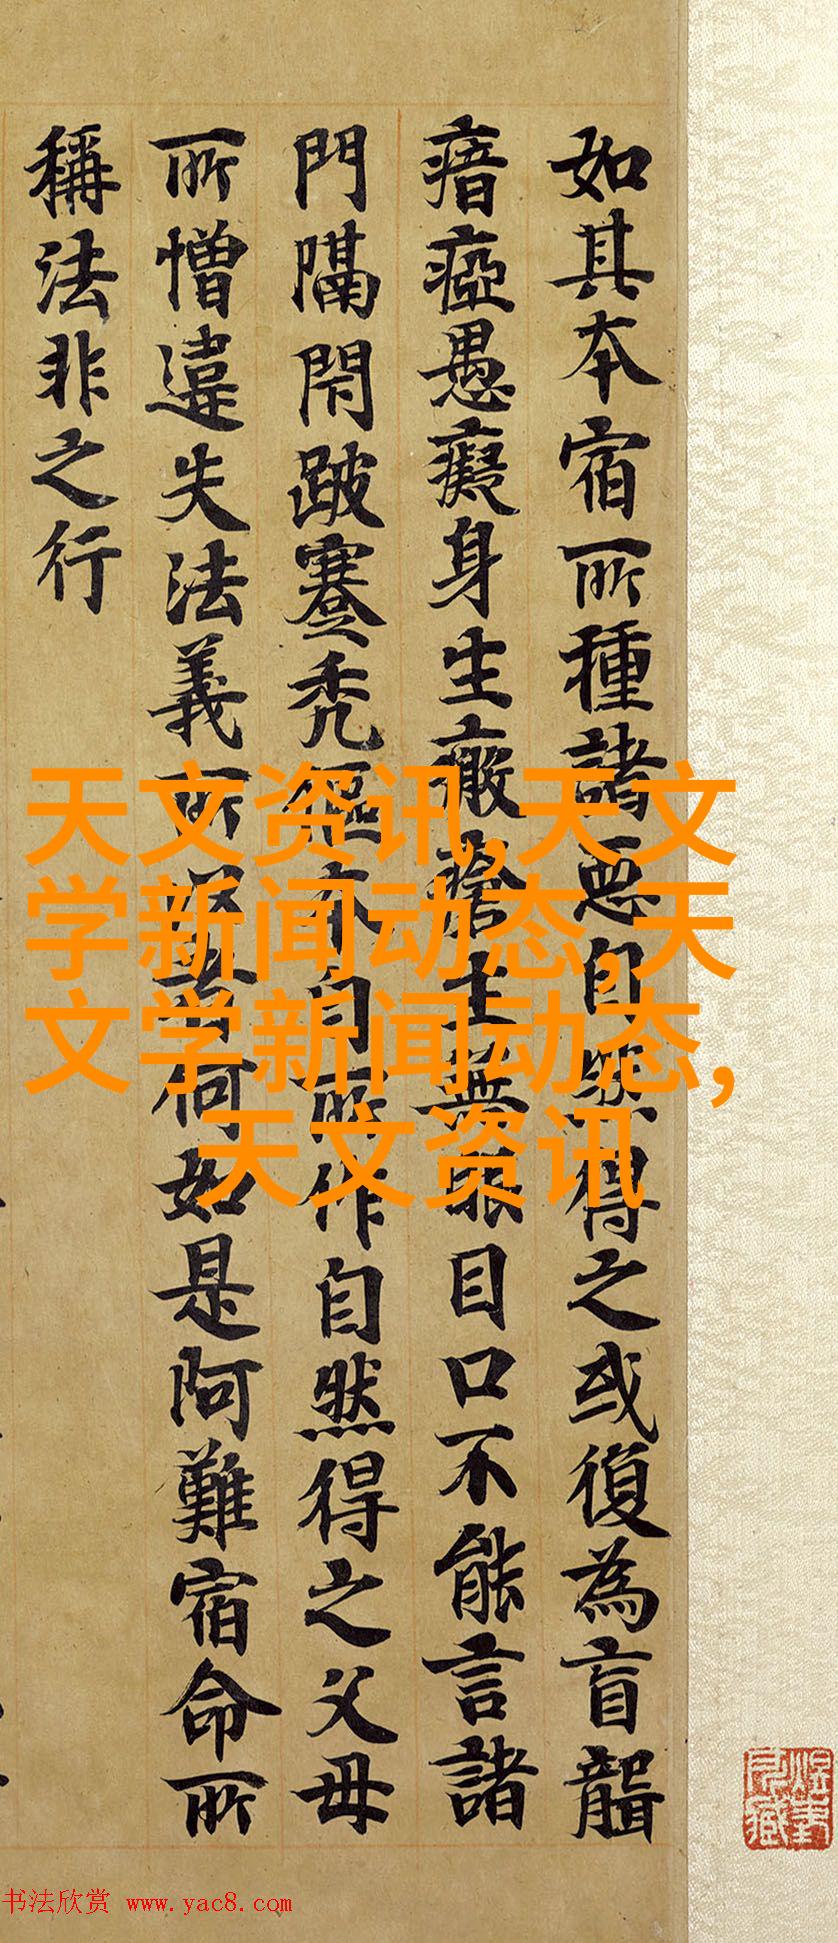 如其本宿所種諸惡自然得之或復為盲聾
瘖瘂愚癡身生瘢瘡無眼目口不能言諸
門隔閇跛蹇禿傴本自所作自然得之父母
所憎違失法義所者何如是阿難宿命所
稱法非之行
天文资讯,天文
学新闻动态,天
文学新闻动态,
天文资讯
书法欣赏 www.yac8.com